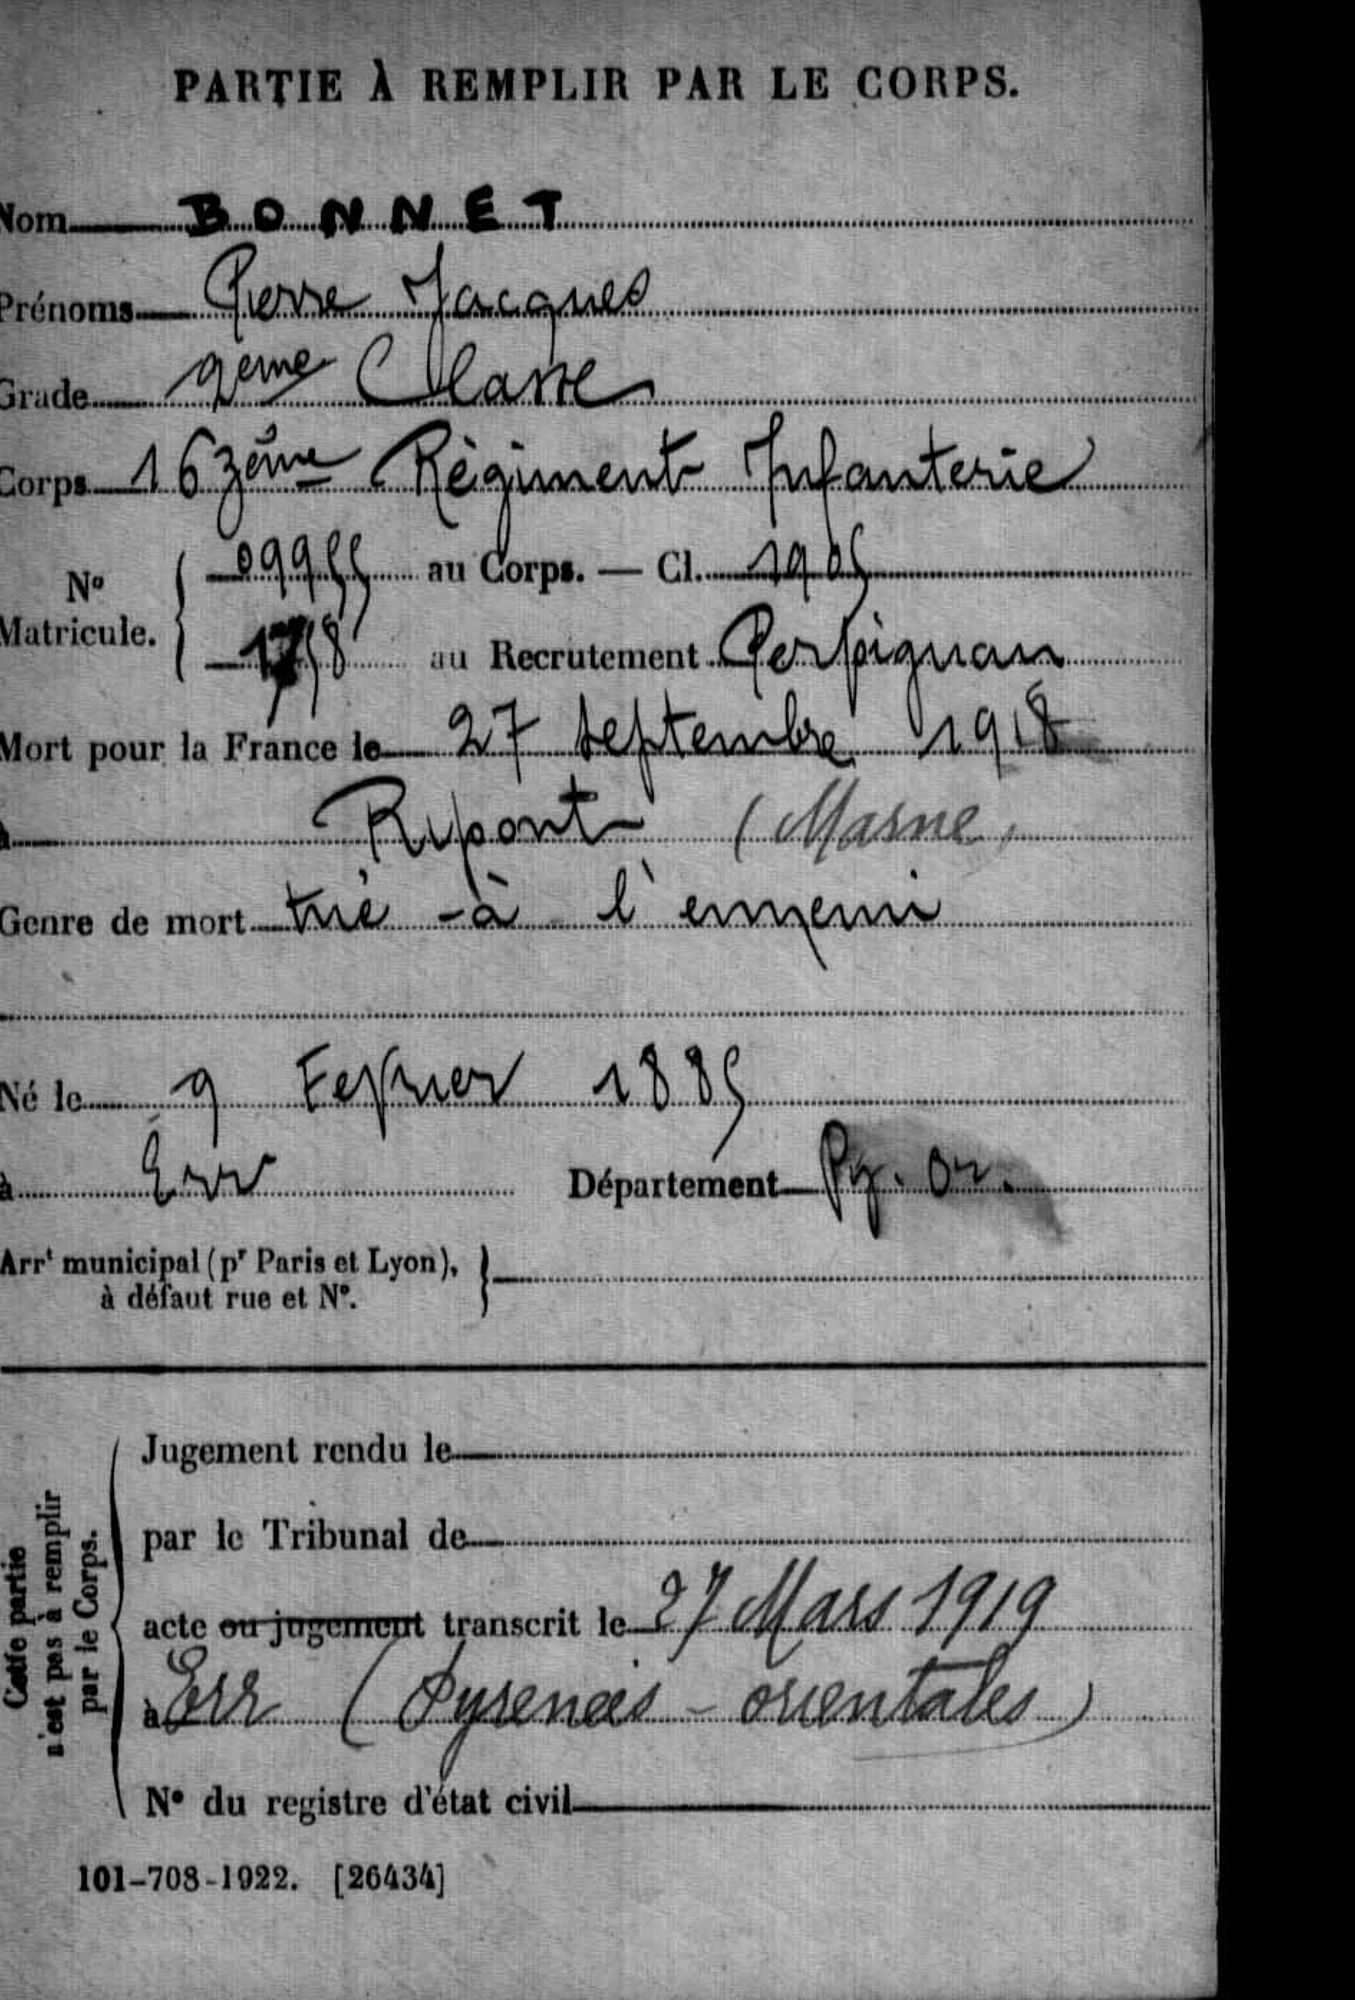 PARTIE À REMPLIR PAR LE CORPS.
Nom BONNET
Prénoms Pierre Jacques
Grade 2ème Classe
Corps 163ème Régiment Infanterie
N° Matricule. 09955 au Corps. — Cl. 1905
au Recrutement Perpignan
Mort pour la France le 27 septembre 1918
à Ripont (Marne)
Genre de mort tué à l'ennemi
Né le 9 Fevrier 1885
à Err Département Py. Or.
Arrt municipal (pr Paris et Lyon),
à défaut rue et N°.
Cette partie
n'est pas à remplir
par le Corps.
Jugement rendu le
par le Tribunal de
acte ou jugement transcrit le 27 Mars 1919
à Err (Pyrenées-orientales)
N° du registre d'état civil
101-708-1922. [26434]